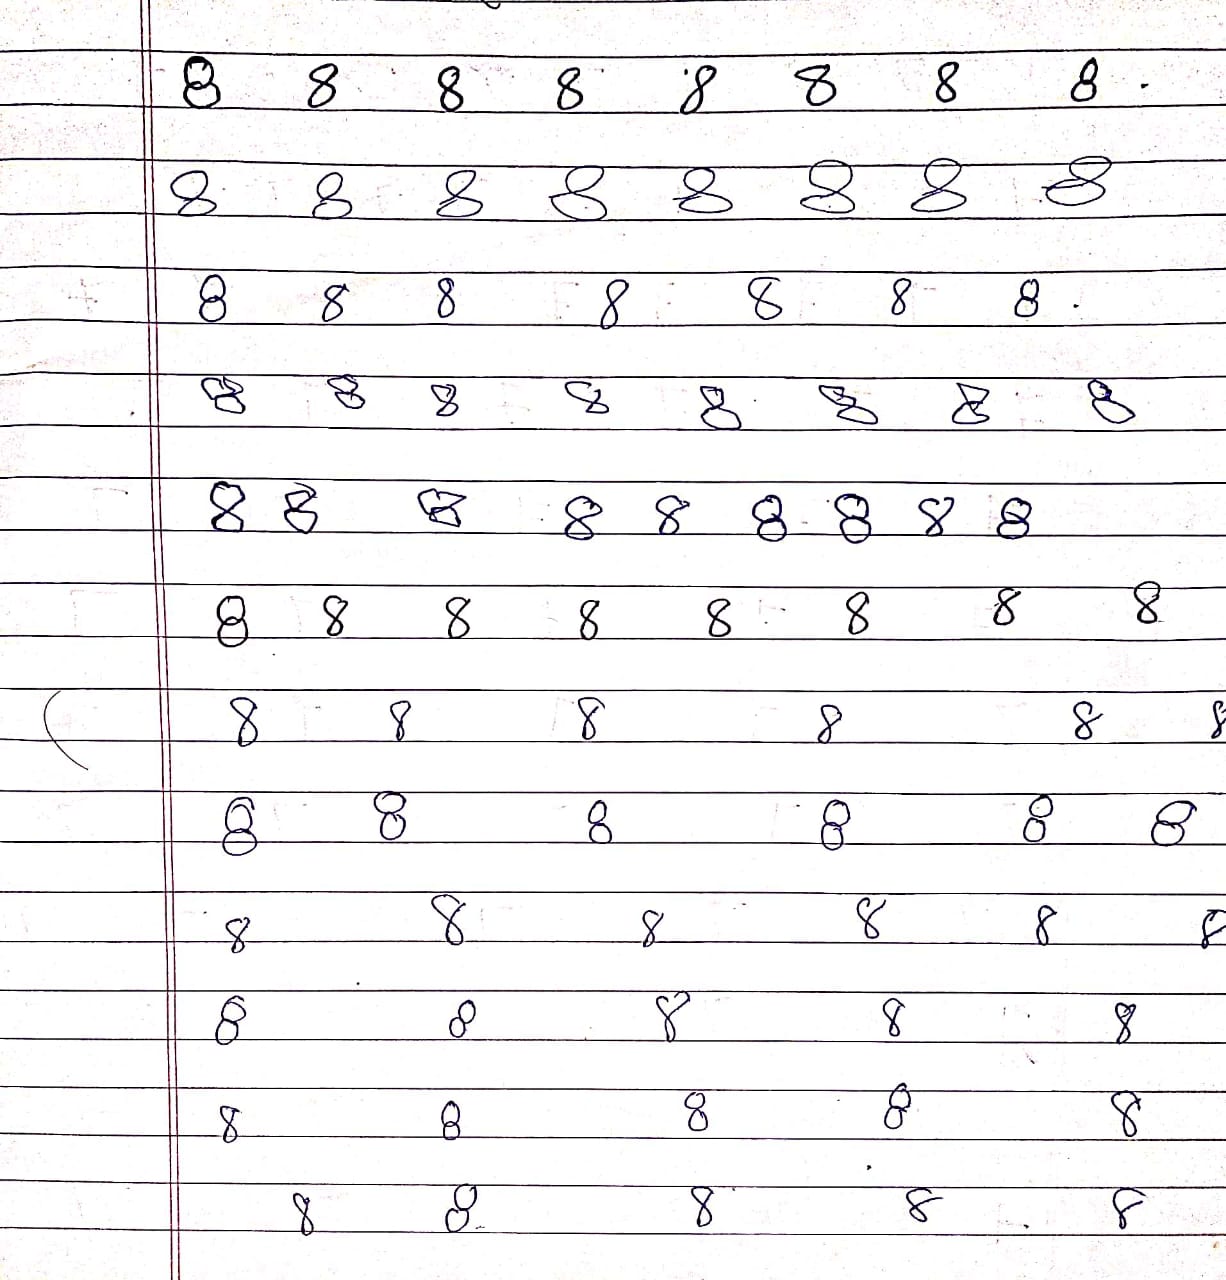 8 8 8 8 8 8 8 8
8 8 8 8 8 8 8 8
8 8 8 8 8 8 8
8 8 8 8 8 8 8 8
8 8 8 8 8 8 8 8 8
8 8 8 8 8 8 8 8
8 8 8 8 8 8
8 8 8 8 8 8
8 8 8 8 8 8
8 8 8 8 8
8 8 8 8 8
8 8 8 8 8